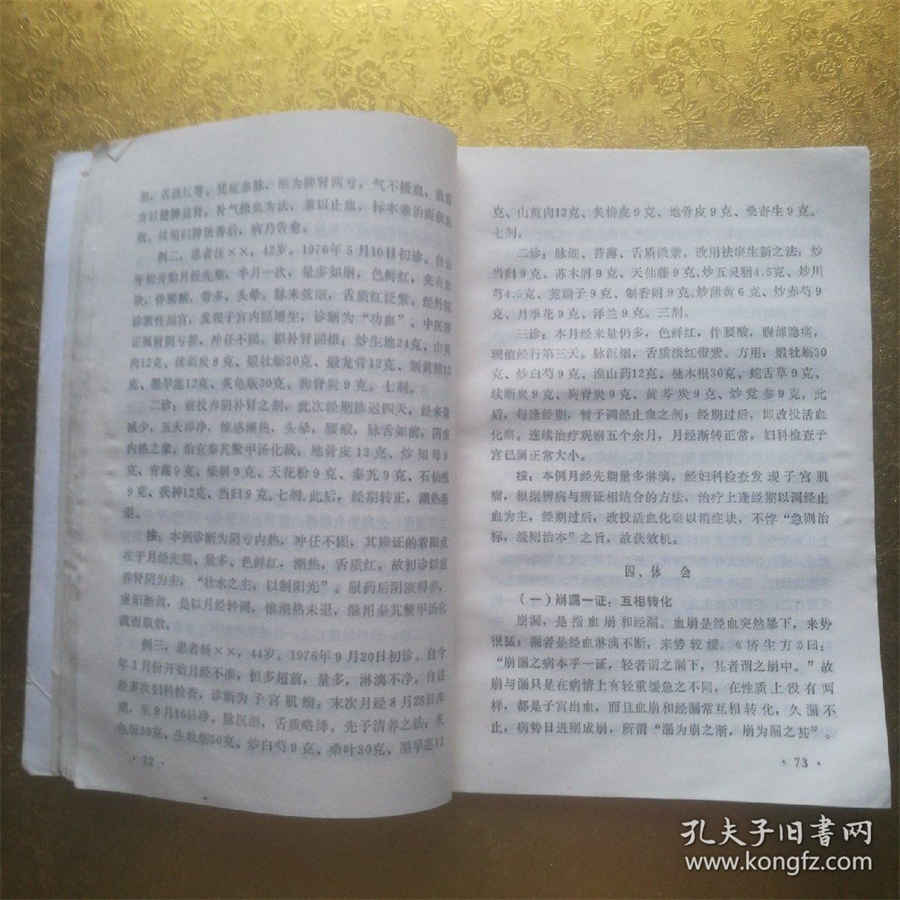 方以健脾益肾、补气摄血为法,兼以止血,标本兼治而获
例二、患者任××,42岁。1976年5月16日初诊。自
年轻旁勤月经先期,半月一次,量多如崩,色鲜红,夹有
块,伴腰酸,带多,头晕。脉来弦细,舌质红泛紫。经外
诊断性刮宫,发现子宫内膜增生,诊断为“功血”。中医
证属肾阴亏损,冲任不固。拟补肾固摄:炒生地24克、山
肉12克、侧柏炭9克、煅牡蛎30克、煅龙骨12克、制黄精12
克、墨旱莲12克、炙龟版30克、狗脊炭9克。七剂。
二诊:前投养阴补肾之剂,此次经期推迟四天,经来量
减少,五天即净,惟感潮热,头晕,腰酸,脉舌如前,阴虚
内热之象。治宜秦艽鳖甲汤化裁:地骨皮12克、炒知母9
克、青蒿9克、柴胡9克、天花粉9克、秦艽9克、石仙桃
9克、茯神12克、当归9克。七剂。此后,经期转正,潮热
退。
按:本例诊断为阴亏内热,冲任不固,其辩证的着眼点
在于月经先期、量多、色鲜红,潮热,舌质红。故初诊以
养肾阴为主,“壮水之主,以制阳光”。服药后阴液得养,
虚阳渐敛,是以月经转调,惟潮热未退,继用秦艽鳖甲汤化
裁而取效。
例三、患者杨××,44岁。1976年9月20日初诊。自今
年1月份开始月经不准,恒多超前,量多,淋漓不净,自
多次妇科检查,诊断为子宫肌瘤;末次月经8月28日
来,至9月16日净。脉沉细,舌质略绛。先予清养之法:
龟版30克、生牡蛎30克、炒白芍9克、桑叶30克、墨旱莲12
· 72 ·
克、山萸肉12克、炙椿皮9克、地骨皮9克、桑寄生9克。
七剂。
二诊:脉细、苔薄、舌质微紫,改用祛瘀生新之法:炒
当归9克、苏木屑9克、天仙藤9克、炒五灵脂4.5克、炒川
芎4.5克、茺蔚子9克、制香附9克、炒蒲黄6克、炒赤芍9
克、月季花9克、泽兰9克。三剂。
三诊:本月经来量仍多,色鲜红,伴腰酸,腹部隐痛,
现值经行第三天。脉沉细,舌质淡红带紫。方用:煅牡蛎30
克、炒白芍9克、淮山药12克、楤木根30克、蛇舌草9克、
续断炭9克、狗脊炭9克、黄芩炭9克、炒党参9克,此
后,每逢经期,暂予调经止血之剂;经期过后,即改投活血
化瘀。连续治疗观察五个余月,月经渐转正常,妇科检查子
宫已属正常大小。
按:本例月经先期量多淋漓,经妇科检查发现子宫肌
瘤,根据辨病与辨证相结合的方法,治疗上逢经期以调经止
血为主,经期过后,改投活血化瘀以消症块,不悖“急则治
标,缓则治本”之旨,故获效机。
四、体 会
(一)崩漏一证:互相转化
崩漏,是指血崩和经漏。血崩是经血突然暴下,来势
很猛;漏者是经血淋漓不断,来势较缓。《济生方》曰:
“崩漏之病本乎一证,轻者谓之漏下,甚者谓之崩中。”故
崩与漏只是在病情上有轻重缓急之不同,在性质上没有两
样,都是子宫出血,而且血崩和经漏常互相转化,久漏不
止,病势日进则成崩,所谓“漏为崩之渐,崩为漏之甚”。
· 73 ·
孔夫子旧书网
www.kongfz.com